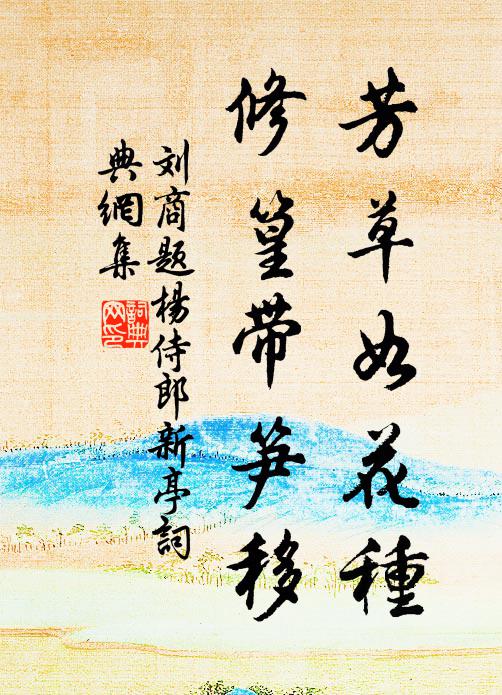 芳草如花種
修篁帶笋移
刘商题楊侍郎新亭詞
典網集
詞典
网印